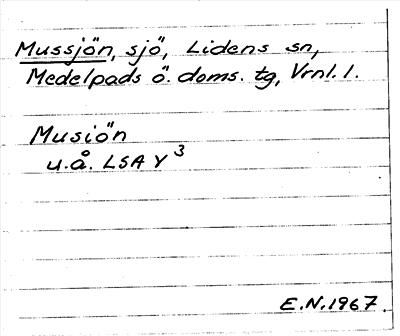 Mussjön, sjö, Lidens sn,
Medelpads ö. doms. tg, Vrnl. l.
Musiön
u.å. LSA Y 3
E.N. 1967